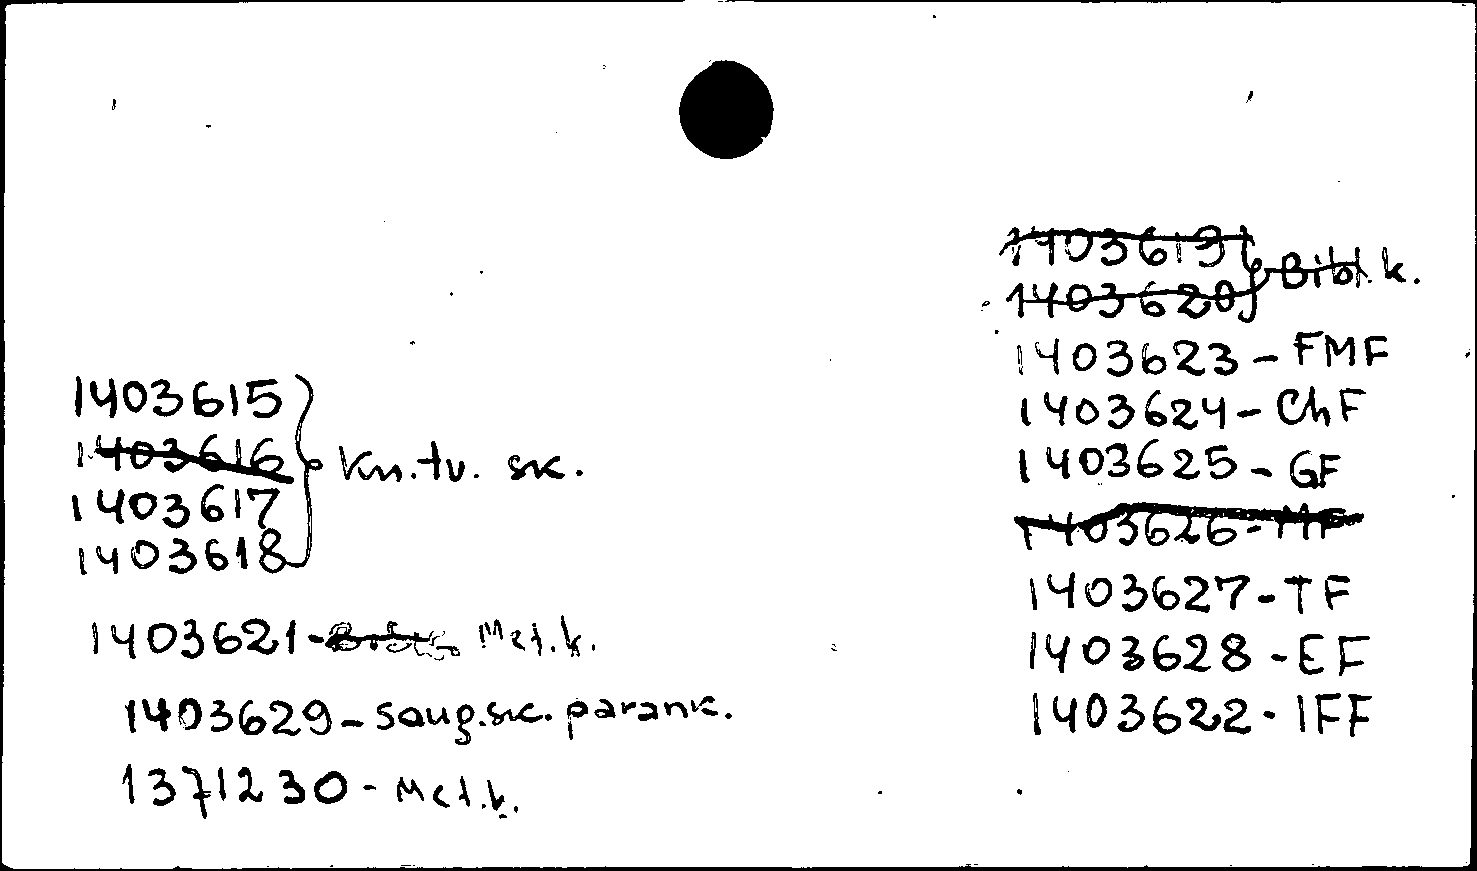 1403615
1403616
1403617
1403618
Kn.tv. sk.
1403621- Met.k.
1403629-saug.sk. parank.
1371230- Met.k.
1403619
1403620
Bibl.k.
1403623-FMF
1403624-ChF
1403625-GF
1403626-MF
1403627-TF
1403628-EF
1403622-IFF